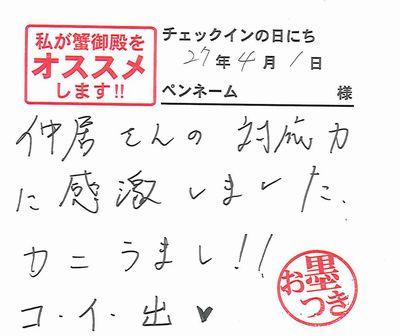 私が蟹御殿を
オススメ
します!!
チェックインの日にち
27年4月1日
ペンネーム 様
仲居さんの対応力
に感激しました.
カニうまし!!
コ・イ・出♥
お墨つき